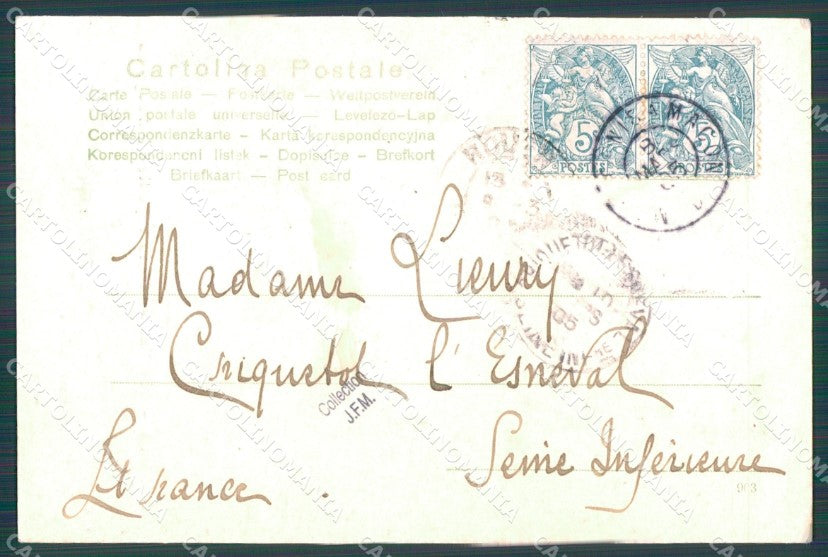 Cartolina Postale
Carte Postale — Postkarte — Weltpostverein
Union postale universelle — Levelezö-Lap
Correspondenzkarte - Karta korespondencyjna
Korespondencni listek - Dopisnize - Brefkort
Briefkaart — Post card
5c 5c
POSTES POSTES
Madame Lieury
Criquetot l'Esneval
Collection
J.F.M.
France
Seine Inférieure
903
CARTOLINOMANIA